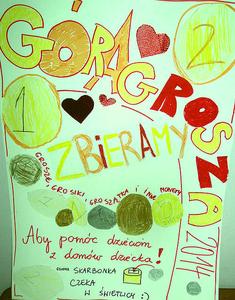 GÓRA
GROSZA
2
1
ZBIERAMY
GROSZE, GROSIKI, GROSZĄTKA I INNE MONETY
2014
Aby pomóc dzieciom
z domów dziecka!
SKARBONKA
CZEKA
W ŚWIETLICY :)